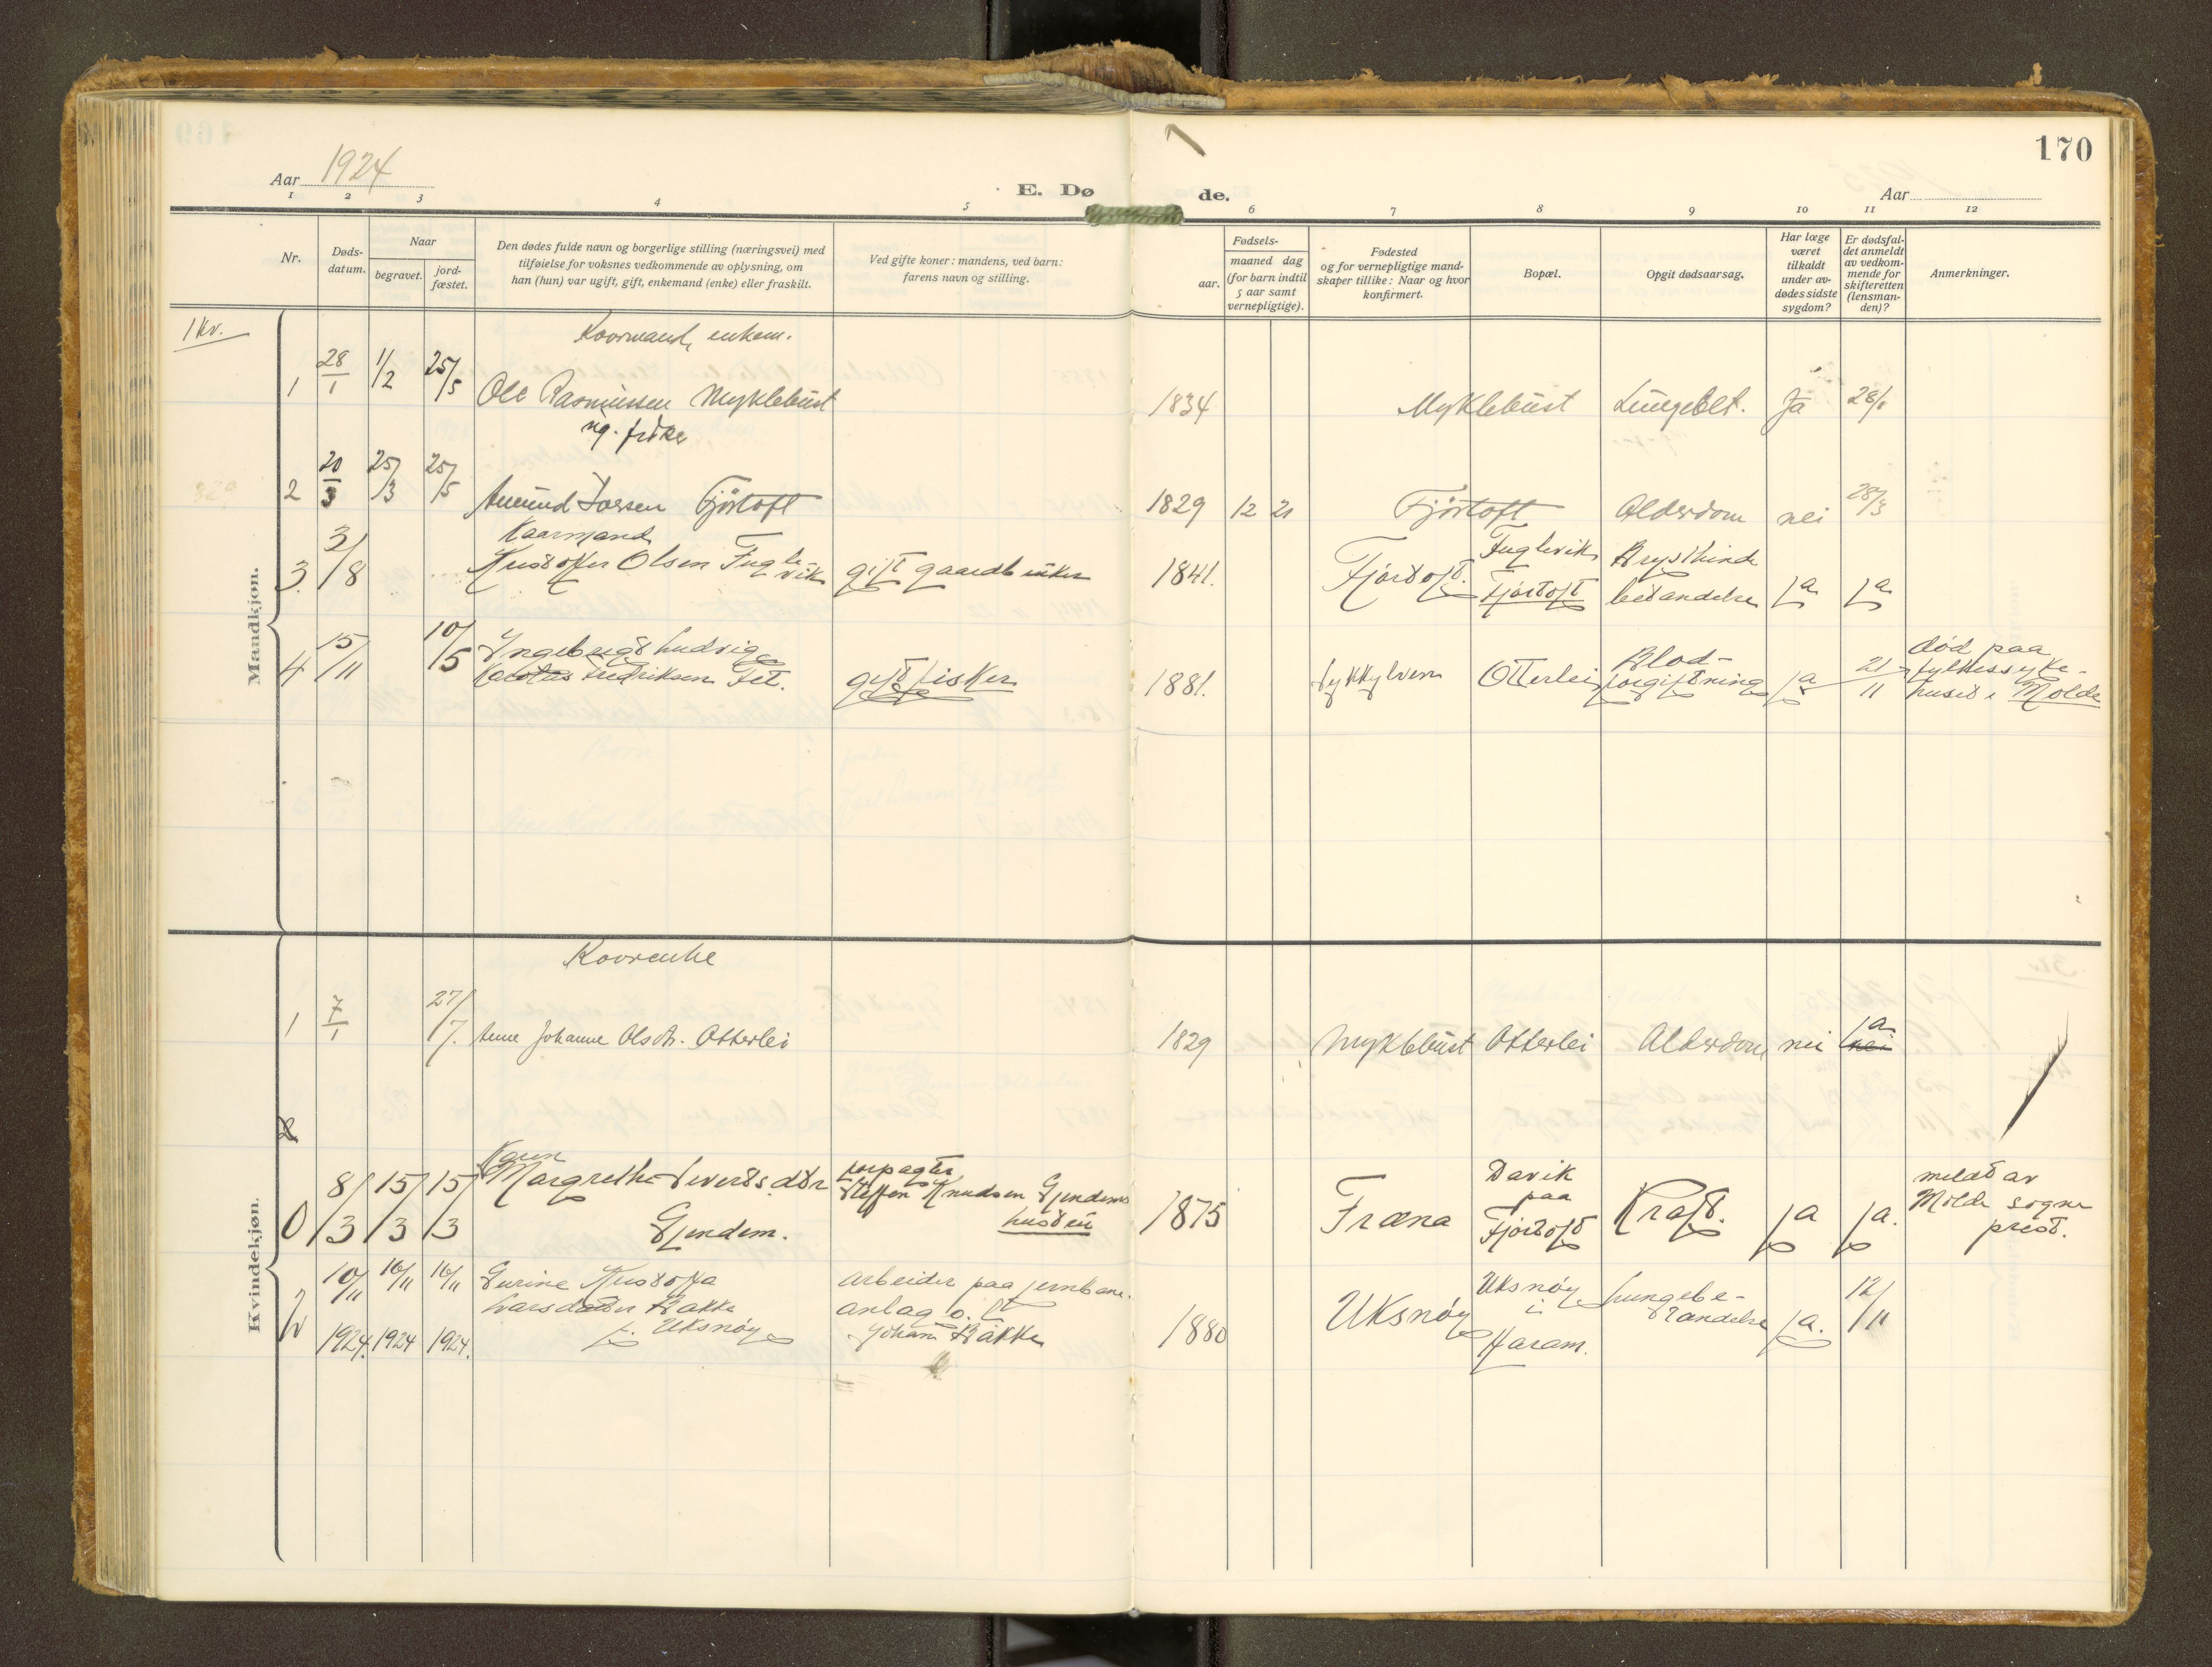 170
Aar 1924
E. Døde.
Aar
1 2 3 4 5 6 7 8 9 10 11 12
Nr.
Døds-
datum.
Naar
begravet.
jord-
fæstet.
Den dødes fulde navn og borgerlige stilling (næringsvei) med
tilføielse for voksnes vedkommende av oplysning, om
han (hun) var ugift, gift, enkemand (enke) eller fraskilt.
Ved gifte koner: mandens, ved barn:
farens navn og stilling.
Fødsels-
aar.
maaned dag
(for barn indtil
5 aar samt
vernepligtige).
Fødested
og for vernepligtige mand-
skaper tillike: Naar og hvor
konfirmert.
Bopæl.
Opgit dødsaarsag.
Har læge
været
tilkaldt
under av-
dødes sidste
sygdom?
Er dødsfal-
det anmeldt
av vedkom-
mende for
skifteretten
(lensman-
den)?
Anmerkninger.
Mandkjøn.
1 kv.
Kaarmand, enkem.
1 28/1 1/2 25/5 Ole Rasmussen Myklebust 1834 Myklebust Lungebet. Ja 28/1
ug. fisker
2 20/3 25/3 25/5 Amund Larsen Fjørtoft 1829 12 21 Fjørtoft Alderdom nei 28/3
Kaarmand
3 3/8 Kristoffer Olsen Fugle-
vik gift gaardbruker 1841. Fjørtoft. Fuglevik
Fjørtoft
Brysthinde
betændelse ja ja
4 15/11 10/5 Ingebrigt Ludvig
Karolus Fredriksen Fet. gift fisker 1881. Sykkylven Otterlei Blod-
forgiftning ja 21/11 død paa
fylkessyke-
huset i Molde
Kvindekjøn.
Kaarenke
1 7/1 27/7. Anne Johanne Olsdtr. Otterlei 1829 Myklebust Otterlei Alderdom nei ja
nei
2
0 8/3 15/3 15/3 Karen
Margrethe Sivertsdtr
Gjendem.
forpagter
Steffen Knudsen Gjendems
hustru
1875 Fræna Davik
paa
Fjørtoft
Kræft. ja ja. meldt av
Molde sogne
prest.
2 10/11 16/11 16/11
1924. 1924 1924.
Gurine Kristoffa
Larsdatter Bakke
f. Uksnøy
arbeider paa jernbane.
anlag o. lt
Johan Bakke
1880 Uksnøy Uksnøy
i
Haram.
Lungebe-
tændelse ja. 12/11